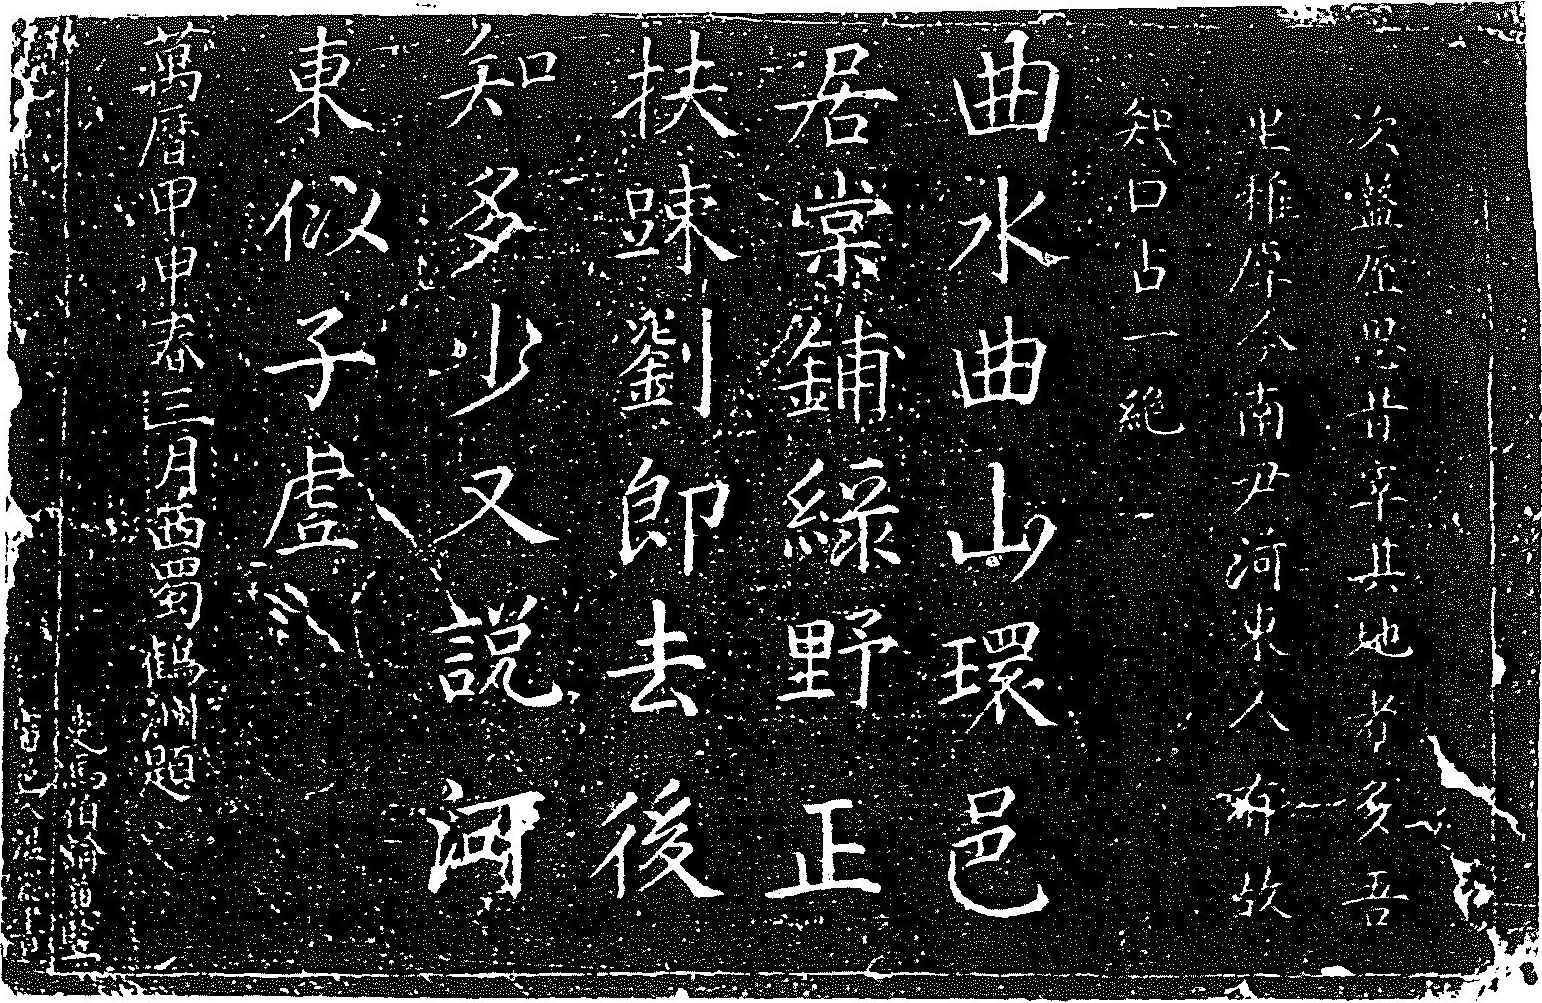 次盩厔思廿年其地者多吾
雅厚今南尹河東人故
知口占一絕
曲水曲山環邑
居棠鋪綠野正
扶疎劉郎去後
知多少又説河
東似子虛
萬曆甲申春三月西蜀洲題